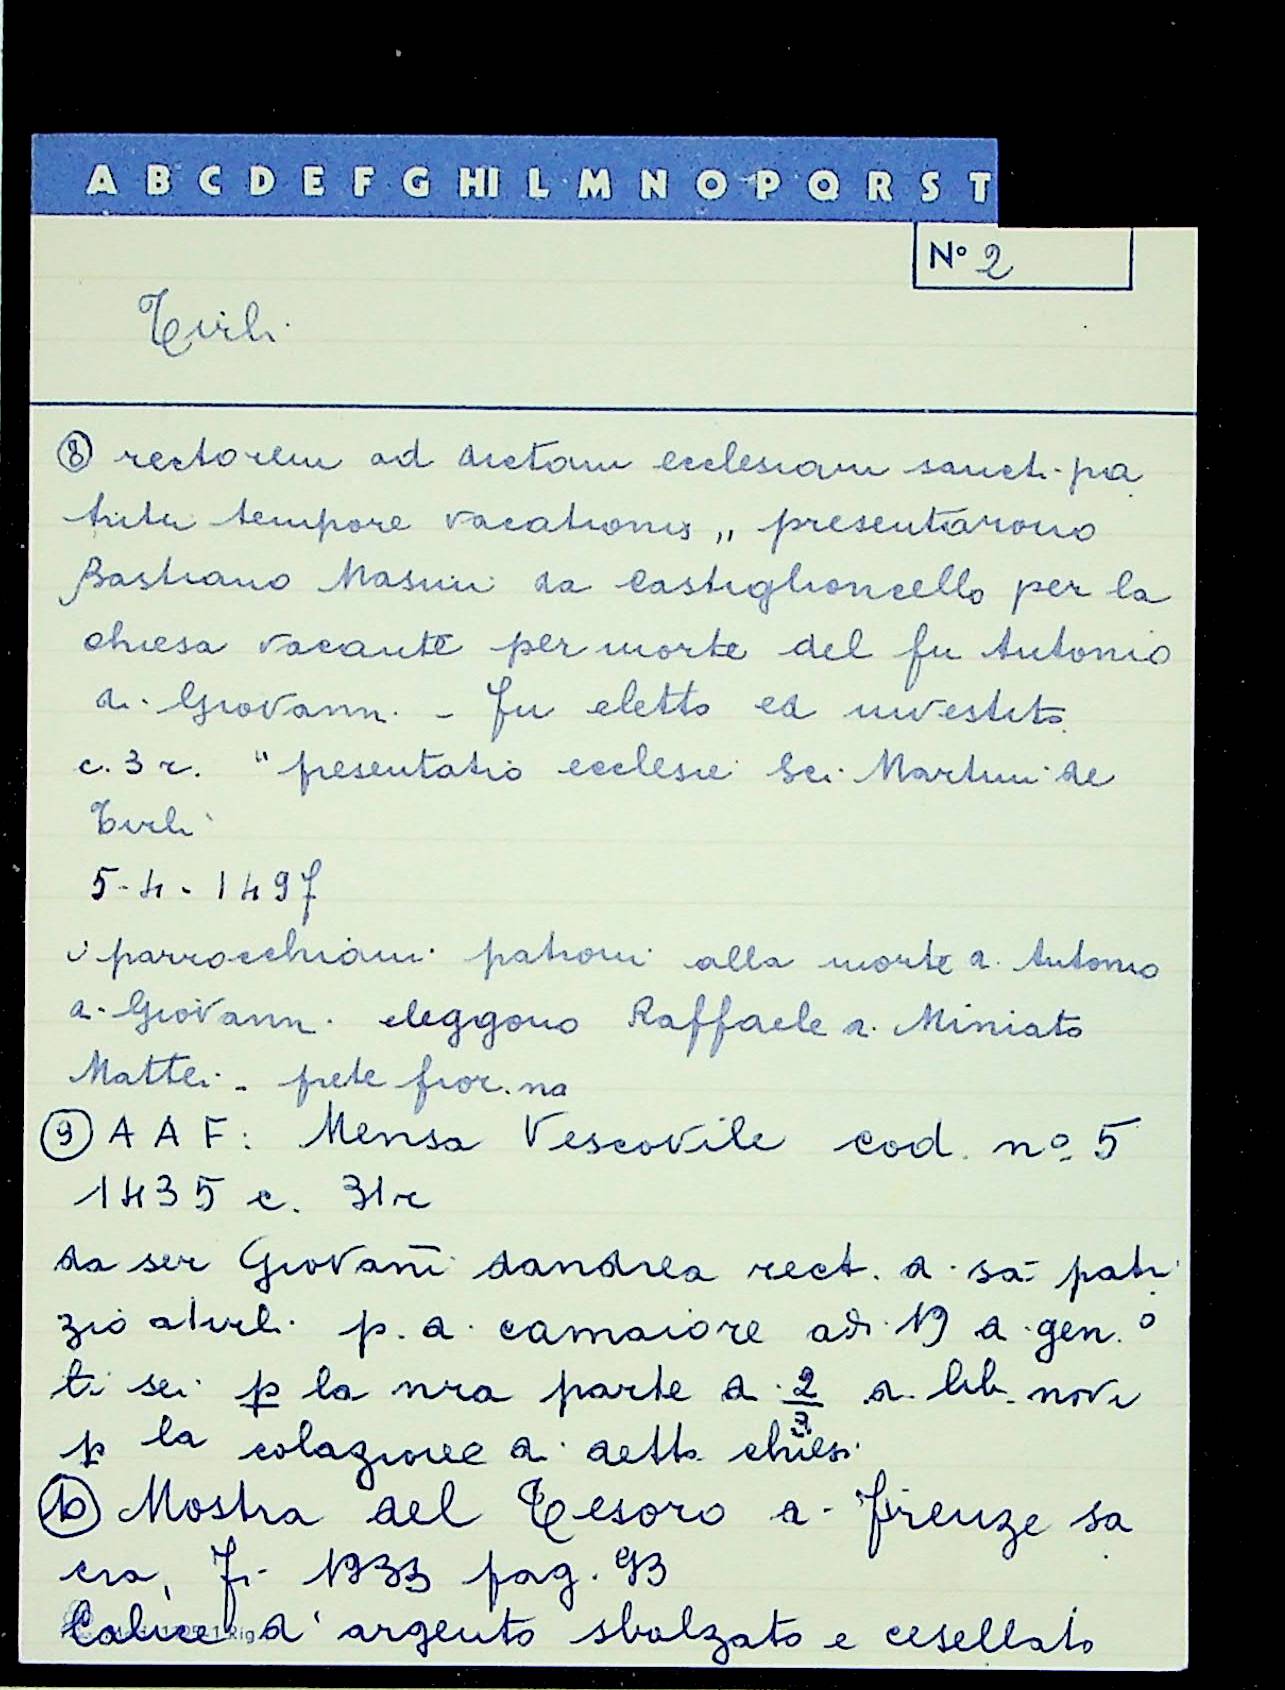 A B C D E F G HI L M N O P Q R S T
N° 2
Tirli
⑧ rectorem ad dictam ecclesiam sancti pa
tritii tempore vacationis „ presentarono
Bastiano Masini da Castiglioncello per la
chiesa vacante per morte del fu Antonio
di Giovanni - fu eletto ed investito
c. 3 r. "presentatio ecclesie Sci Martini de
Tirli
5-4-1497
i parrocchiani patroni alla morte di Antonio
di Giovanni eleggono Raffaele di Miniato
Mattei - prete fior.no
⑨ A A F: Mensa Vescovile cod. nº 5
1435 c. 31r
da ser Giovanī dandrea rect. di sā patri
zio atirli p. a camaiore adi 19 di gen.°
li sei p la nra parte di 2/3 di lib. nove
p la colazione di detta chiesi
⑩ Mostra del Tesoro di Firenze sa
cra, Fi 1933 pag. 93
Calice d'argento sbalzato e cesellato